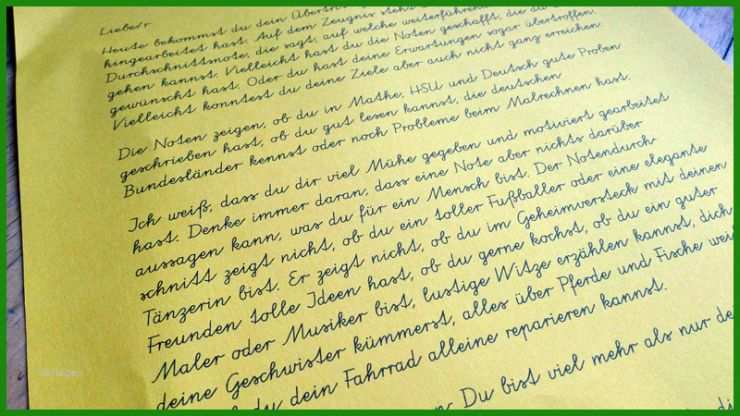 Liebe/r
Heute bekommst du dein Übertri
hingearbeitet hast. Auf dem Zeugnis steht
Durchschnittsnote, die sagt, auf welche weiterführen
gehen kannst. Vielleicht hast du die Noten geschafft, die du
gewünscht hast. Oder du hast deine Erwartungen sogar übertroffen.
Vielleicht konntest du deine Ziele aber auch nicht ganz erreichen
Die Noten zeigen, ob du in Mathe, HSU und Deutsch gute Proben
geschrieben hast, ob du gut lesen kannst, die deutschen
Bundesländer kennst oder noch Probleme beim Malrechnen hast.
Ich weiß, dass du dir viel Mühe gegeben und motiviert gearbeitet
hast. Denke immer daran, dass eine Note aber nichts darüber
aussagen kann, was du für ein Mensch bist. Der Notendurch-
schnitt zeigt nicht, ob du ein toller Fußballer oder eine elegante
Tänzerin bist. Er zeigt nicht, ob du im Geheimversteck mit deinen
Freunden tolle Ideen hast, ob du gerne kochst, ob du ein guter
Maler oder Musiker bist, lustige Witze erzählen kannst, dich
deine Geschwister kümmerst, alles über Pferde und Fische wei
du dein Fahrrad alleine reparieren kannst.
Du bist viel mehr als nur de